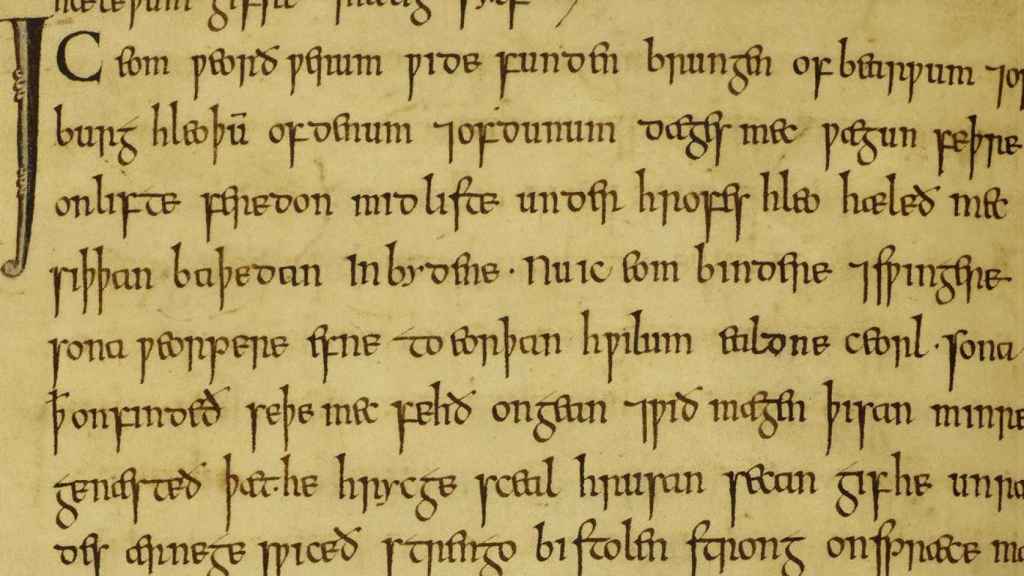 hæleþum gifre ⁊ halig sylf
IC eom ƿeorð ƿerum ƿide funden brungen of bearƿum ⁊of
burg hleoþū of denum ⁊of dunum dæges mec ƿægun feþre
on lifte feredon mid liste under hrofes hleo hæleð mec
siþþan baþedan in bydene · Nu ic eom bindere ⁊ sƿingere
sona ƿeorpere efne to eorþan hƿilum ealdne ceorl · sona
ꝥ onfindeð se þe mec fehð ongean ⁊ ƿið mægen þisan minre
genæsteð þæt he hrycge sceal hrusan secan gif he unræ
des ær ne ge sƿiceð strengo bistolen strong on spræce mæ